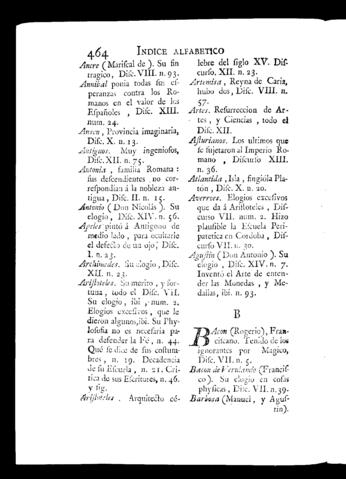 464 INDICE ALFABETICO
Ancre (Mariscal de). Su fin
tragico, Disc. VIII. n. 93.
Annibal ponia todas sus es-
peranzas contra los Ro-
manos en el valor de los
Españoles, Disc. XIII.
num. 24.
Ansen, Provincia imaginaria,
Disc. X. n. 13.
Antiguos. Muy ingeniosos,
Disc. XII. n. 75.
Antonia, familia Romana:
sus descendientes no cor-
respondian á la nobleza an-
tigua, Disc. II. n. 15.
Antonio (Don Nicolás). Su
elogio, Disc. XIV. n. 56.
Apeles pintó á Antigono de
medio lado, para ocultarle
el defecto de un ojo, Disc.
I. n. 23.
Archimedes. Su elogio, Disc.
XII. n. 23.
Aristoteles. Su merito, y for-
tuna, todo el Disc. VII.
Su elogio, ibi, num. 2.
Elogios excesivos, que le
dieron algunos, ibi. Su Phy-
losofia no es necesaria pa-
ra defender la Fé, n. 44.
Qué se dice de sus costum-
bres, n. 19. Decadencia
de su Escuela, n. 21. Cri-
tica de sus Escritures, n. 46.
y sig.
Aristoteles. Arquitecto cé-
lebre del siglo XV. Dis-
curso. XII. n. 23.
Artemisa, Reyna de Caria,
hubo dos, Disc. VIII. n.
57.
Artes. Resurreccion de Ar-
tes, y Ciencias, todo el
Disc. XII.
Asturianos. Los ultimos que
se sujetaron al Imperio Ro-
mano, Discurso XIII.
n. 36.
Atlantida, Isla, fingióla Pla-
tón, Disc. X. n. 20.
Averroes. Elogios excesivos
que dá á Aristoteles, Dis-
curso VII. num. 2. Hizo
plausible la Escuela Peri-
patetica en Cordoba, Dis-
curso VII. n. 30.
Agustin (Don Antonio). Su
elogio, Disc. XIV. n. 7.
Inventó el Arte de enten-
der las Monedas, y Me-
dallas, ibi. n. 93.
B
Bacon (Rogerio), Fran-
ciscano. Tenido de los
ignorantes por Magico,
Disc. VII. n. 5.
Bacon de Verulamio (Francis-
co). Su elogio en cosas
physicas, Disc. VII. n. 39.
Barbosa (Manuel, y Agus-
tin).